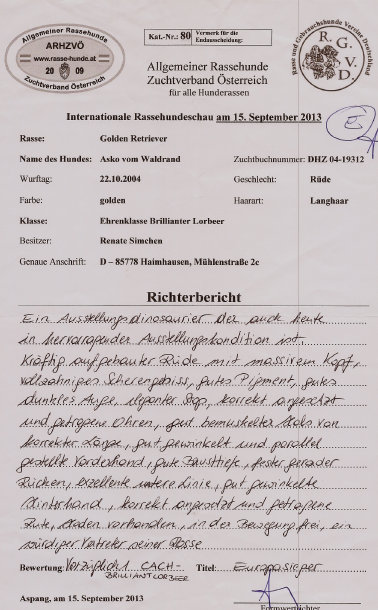 Allgemeiner Rassehunde
ARHZVÖ
www.rasse-hunde.at
20 09
Zuchtverband Österreich
Kat.-Nr.: 80 Vermerk für die
Endausscheidung:
Rasse und Gebrauchshunde Vereine Deutschland
R. G. V. D.
Allgemeiner Rassehunde
Zuchtverband Österreich
für alle Hunderassen
Internationale Rassehundeschau am 15. September 2013
Rasse: Golden Retriever
Name des Hundes: Asko vom Waldrand Zuchtbuchnummer: DHZ 04-19312
Wurftag: 22.10.2004 Geschlecht: Rüde
Farbe: golden Haarart: Langhaar
Klasse: Ehrenklasse Brillianter Lorbeer
Besitzer: Renate Simchen
Genaue Anschrift: D – 85778 Haimhausen, Mühlenstraße 2c
Richterbericht
Ein Ausstellungsdinosaurier der auch heute
in hervorragender Ausstellungskondition ist.
Kräftig aufgebauter Rüde mit massivem Kopf,
vollzahniges Scherengebiss, gutes Pigment, gutes
dunkles Auge, Stop, korrekt angesetzt
und getragene Ohren, gut bemuskelter Hals von
korrekter Länge, gut gewinkelt und parallel
gestellte Vorderhand, gute Brusttiefe, fester gerader
Rücken, exzellente untere Linie, gut gewinkelte
Hinterhand, korrekt angesetzt und getragene
Rute, Hoden vorhanden, in der Bewegung frei, ein
würdiger Vertreter seiner Rasse
Bewertung: Vorzüglich 1 CACH- Titel: Europasieger
BRILLIANTLORBEER
Aspang, am 15. September 2013
Formwertrichter